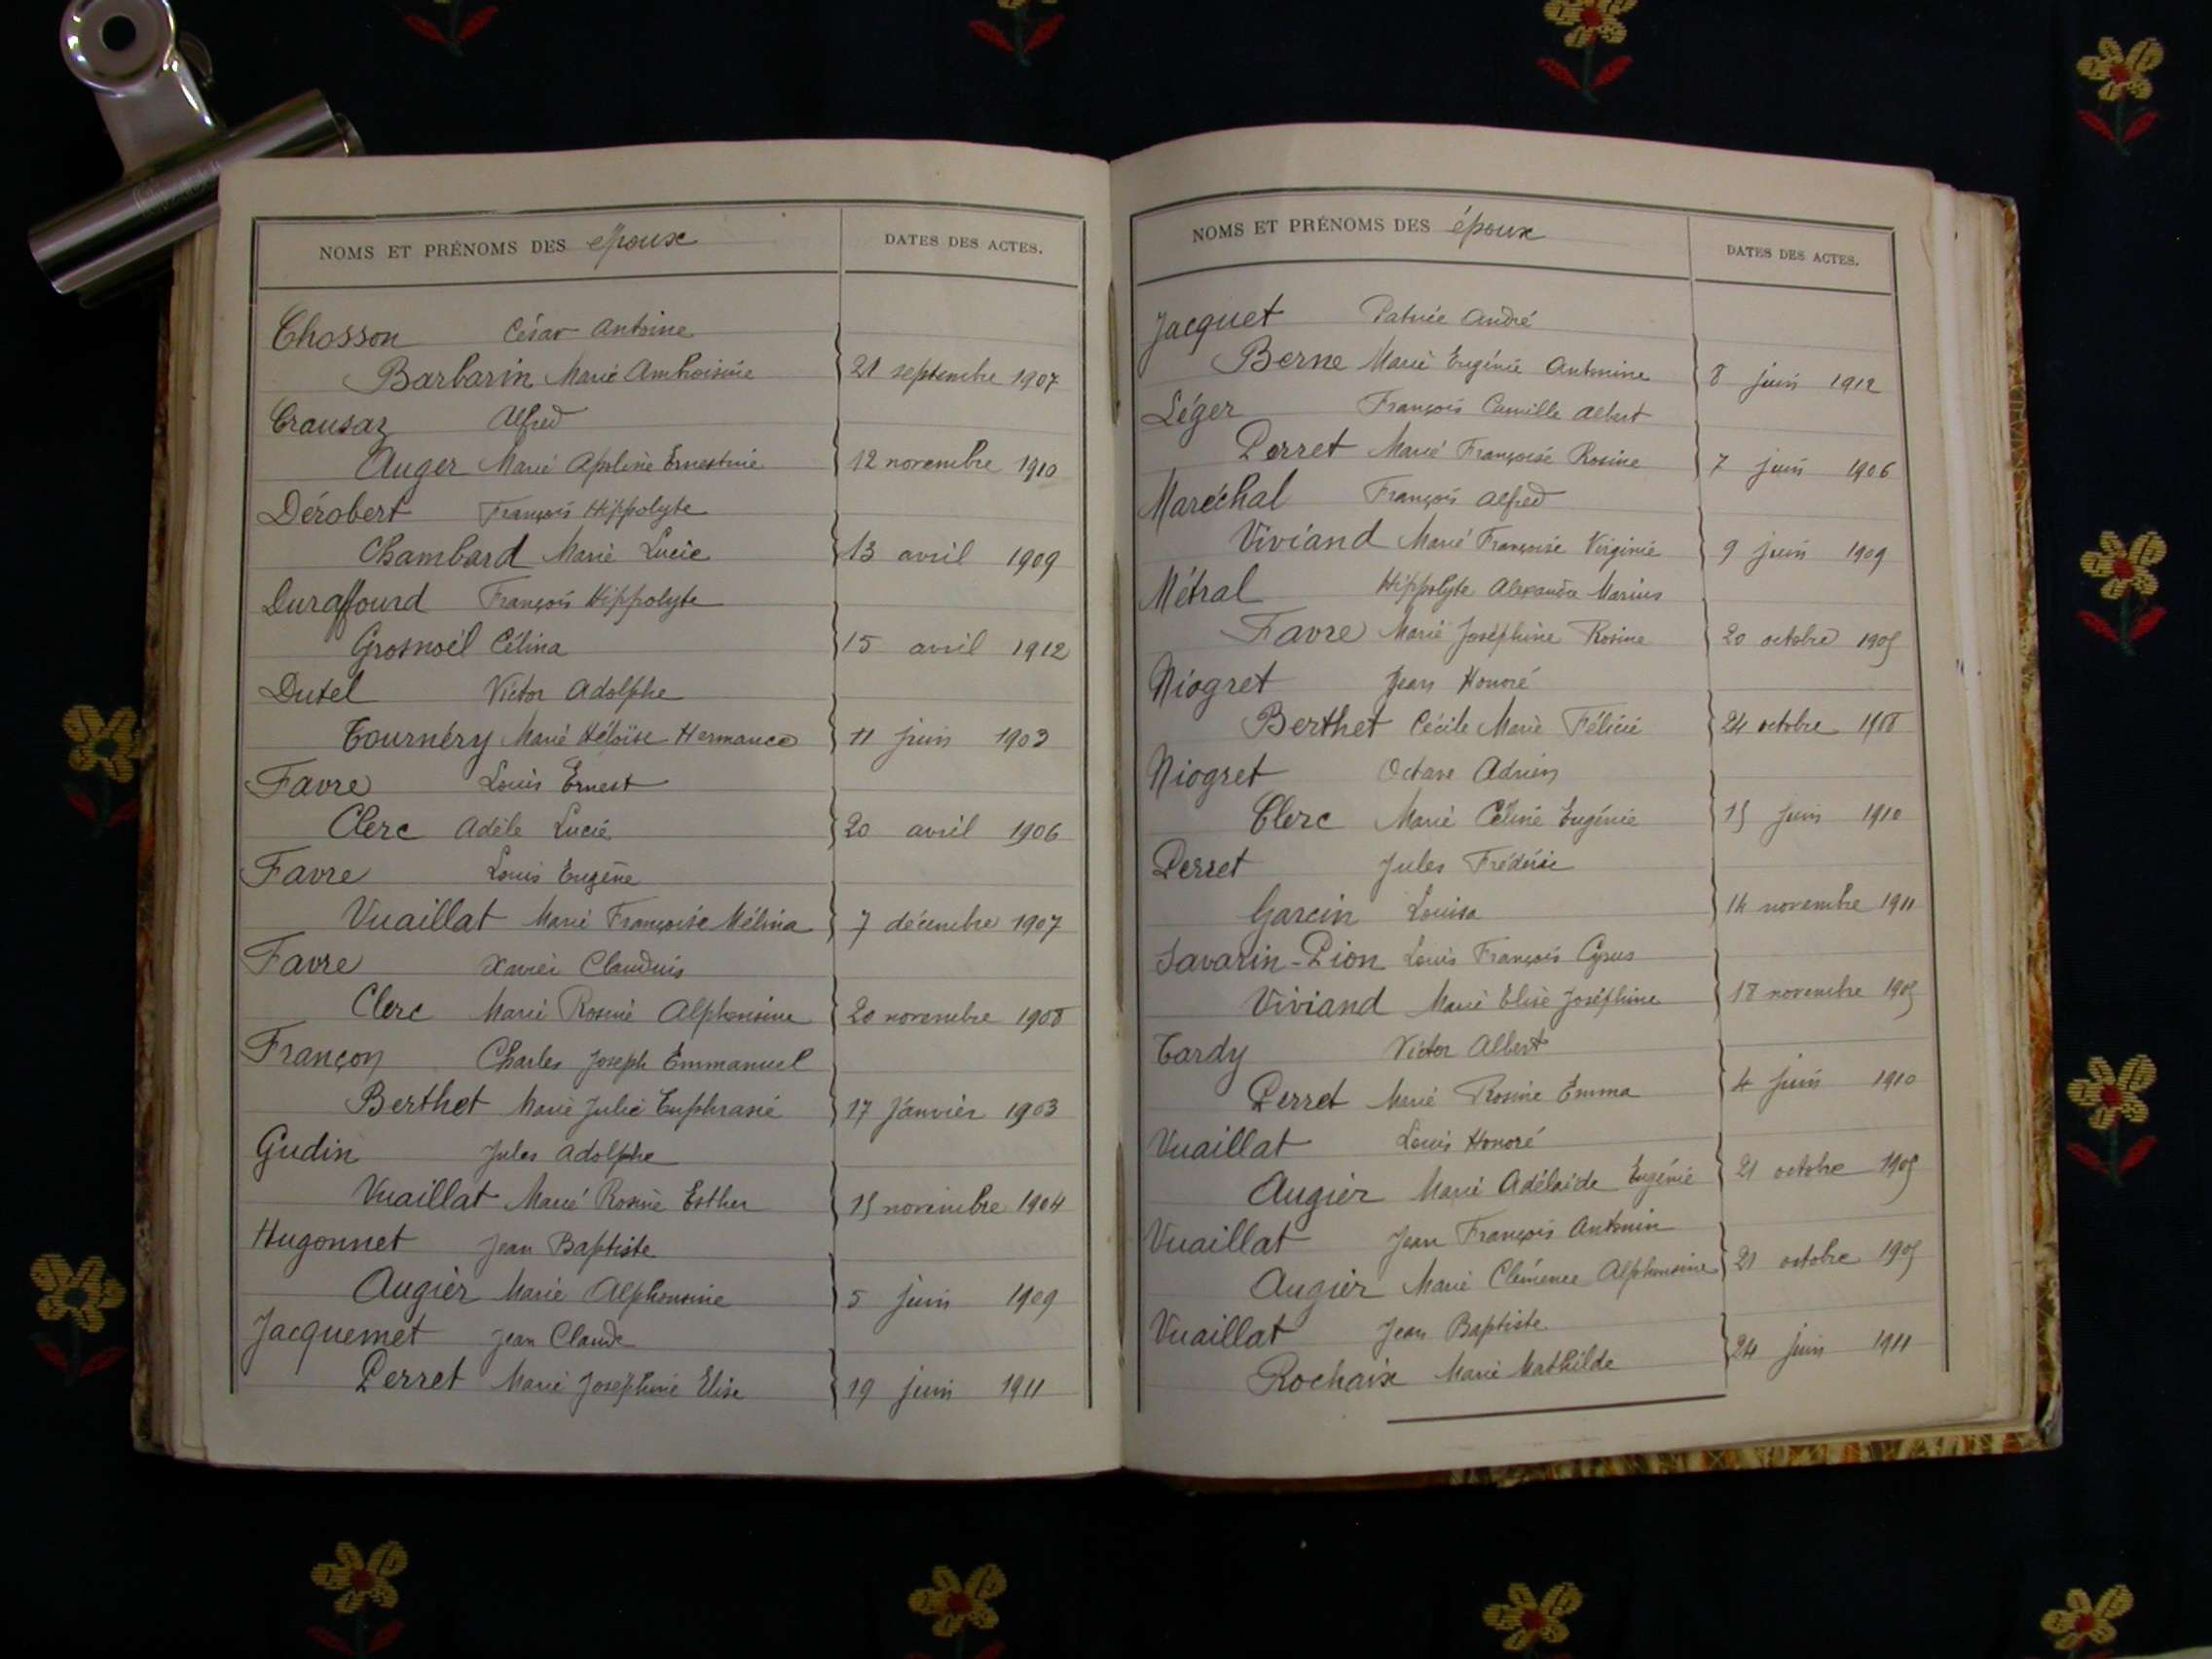 NOMS ET PRÉNOMS DES époux DATES DES ACTES.
Chosson César Antoine
Barbarin Marie Ambroisine 21 septembre 1907
Crausaz Alfred
Auger Marie Apoline Ernestine 12 novembre 1910
Dérobert François Hippolyte
Chambard Marie Lucie 13 avril 1909
Duraffourd François Hippolyte
Grosnoël Célina 15 avril 1912
Dutel Victor Adolphe
Tournéry Marie Héloïse Hermance 11 juin 1903
Favre Louis Ernest
Clerc Adèle Lucie 20 avril 1906
Favre Louis Eugène
Vuaillat Marie Françoise Mélina 7 décembre 1907
Favre Xavier Claudius
Clerc Marie Rosine Alphonsine 20 novembre 1908
Françon Charles Joseph Emmanuel
Berthet Marie Julie Euphrasie 17 Janvier 1903
Gudin Jules Adolphe
Vuaillat Marie Rosine Esther 15 novembre 1904
Hugonnet Jean Baptiste
Augier Marie Alphonsine 5 juin 1909
Jacquemet Jean Claude
Perret Marie Joséphine Elise 19 juin 1911
NOMS ET PRÉNOMS DES époux DATES DES ACTES.
Jacquet André
Berne Marie Eugénie Antonine 8 juin 1912
Léger François Camille Albert
Perret Marie Françoise Rosine 7 juin 1906
Maréchal François Alfred
Viviand Marie Françoise Virginie 9 juin 1909
Métral Hippolyte Alexandre Marius
Favre Marie Joséphine Rosine 20 octobre 1905
Niogret Jean Honoré
Berthet Cécile Marie Félicie 24 octobre 1908
Niogret Octave Adrien
Clerc Marie Céline Eugénie 15 juin 1910
Perret Jules Frédéric
Garcin Louisa 14 novembre 1911
Savarin-Pion Louis François Cyrus
Viviand Marie Elise Joséphine 18 novembre 1905
Tardy Victor Albert
Perret Marie Rosine Emma 4 juin 1910
Vuaillat Louis Honoré
Augier Marie Adélaïde Eugénie 21 octobre 1905
Vuaillat Jean François Antonin
Augier Marie Clémence Alphonsine 21 octobre 1905
Vuaillat Jean Baptiste
Rochaix Marie Mathilde 24 juin 1911